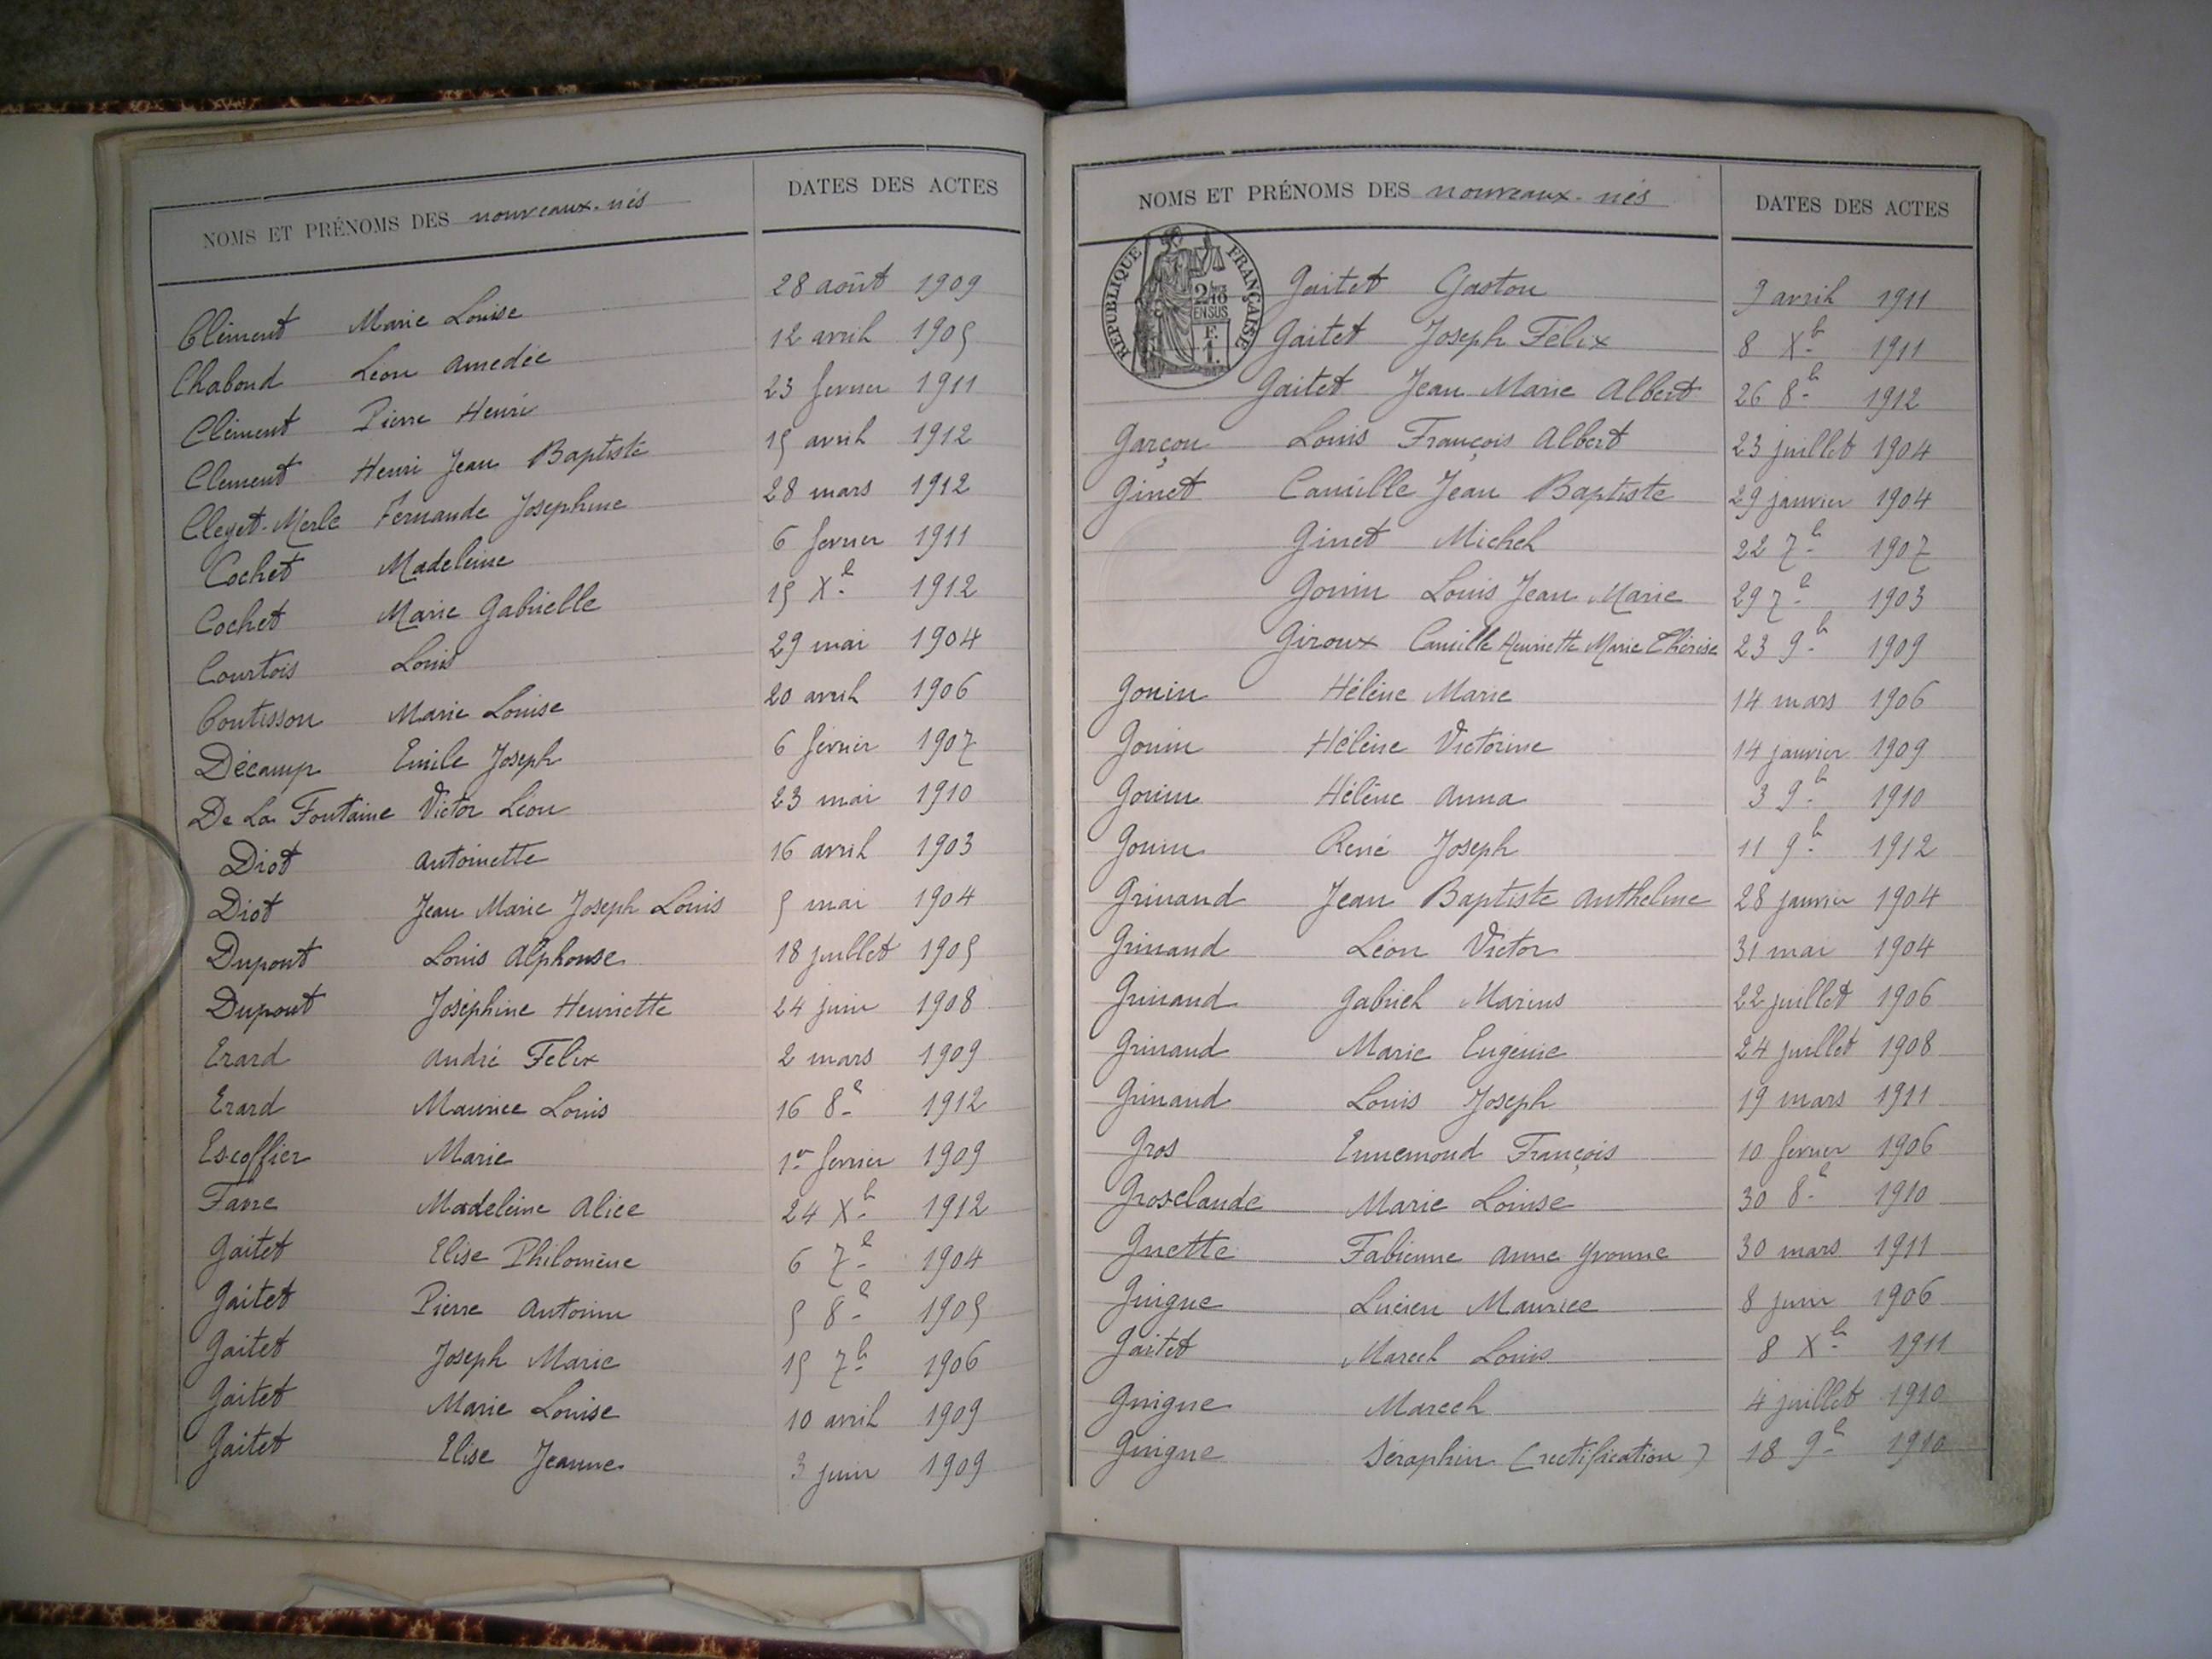 NOMS ET PRÉNOMS DES nouveaux-nés DATES DES ACTES
Clément Marie Louise 28 août 1909
Chaboud Léon Amédée 12 avril 1905
Clément Pierre Henri 23 fevrier 1911
Clement Henri Jean Baptiste 15 avril 1912
Cleyet-Merle Fernande Josephine 28 mars 1912
Cochet Madeleine 6 fevrier 1911
Cochet Marie Gabrielle 15 Xe 1912
Courtois Louis 29 mai 1904
Coutisson Marie Louise 20 avril 1906
Décamp Emile Joseph 6 février 1907
De La Fontaine Victor Léon 23 mai 1910
Diot Antoinette 16 avril 1903
Diot Jean Marie Joseph Louis 5 mai 1904
Dupont Louis Alphonse 18 juillet 1905
Dupont Joséphine Henriette 24 juin 1908
Erard André Félix 2 mars 1909
Erard Maurice Louis 16 8e 1912
Escoffier Marie 1er fevrier 1909
Favre Madeleine Alice 24 Xb 1912
Gaitet Elise Philomène 6 7e 1904
Gaitet Pierre Antonin 5 8e 1905
Gaitet Joseph Marie 15 7b 1906
Gaitet Marie Louise 10 avril 1909
Gaitet Elise Jeanne 3 juin 1909
NOMS ET PRÉNOMS DES nouveaux-nés DATES DES ACTES
RÉPUBLIQUE FRANÇAISE
2/10
EN SUS
F.
1.
Gaitet Gaston 9 avril 1911
Gaitet Joseph Félix 8 Xb 1911
Gaitet Jean Marie Albert 26 8b 1912
Garçon Louis François Albert 23 juillet 1904
Ginet Camille Jean Baptiste 29 janvier 1904
Ginet Michel 22 7b 1907
Gonin Louis Jean Marie 29 7e 1903
Giroux Camille Henriette Marie Thérèse 23 9b 1909
Gonin Hélène Marie 14 mars 1906
Gonin Hélène Victorine 14 janvier 1909
Gonin Hélène Anna 3 9b 1910
Gonin René Joseph 11 9b 1912
Grinand Jean Baptiste Anthelme 28 janvier 1904
Grinand Léon Victor 31 mai 1904
Grinand Gabriel Marius 22 juillet 1906
Grinand Marie Eugénie 24 juillet 1908
Grinand Louis Joseph 19 mars 1911
Gros Ennemond François 10 fevrier 1906
Grosclaude Marie Louise 30 8e 1910
Guette Fabienne Anne Yvonne 30 mars 1911
Guigue Lucien Maurice 8 juin 1906
Gaitet Marcel Louis 8 Xb 1911
Guigue Marcel 4 juillet 1910
Guigue Séraphin (rectification) 18 9b 1910